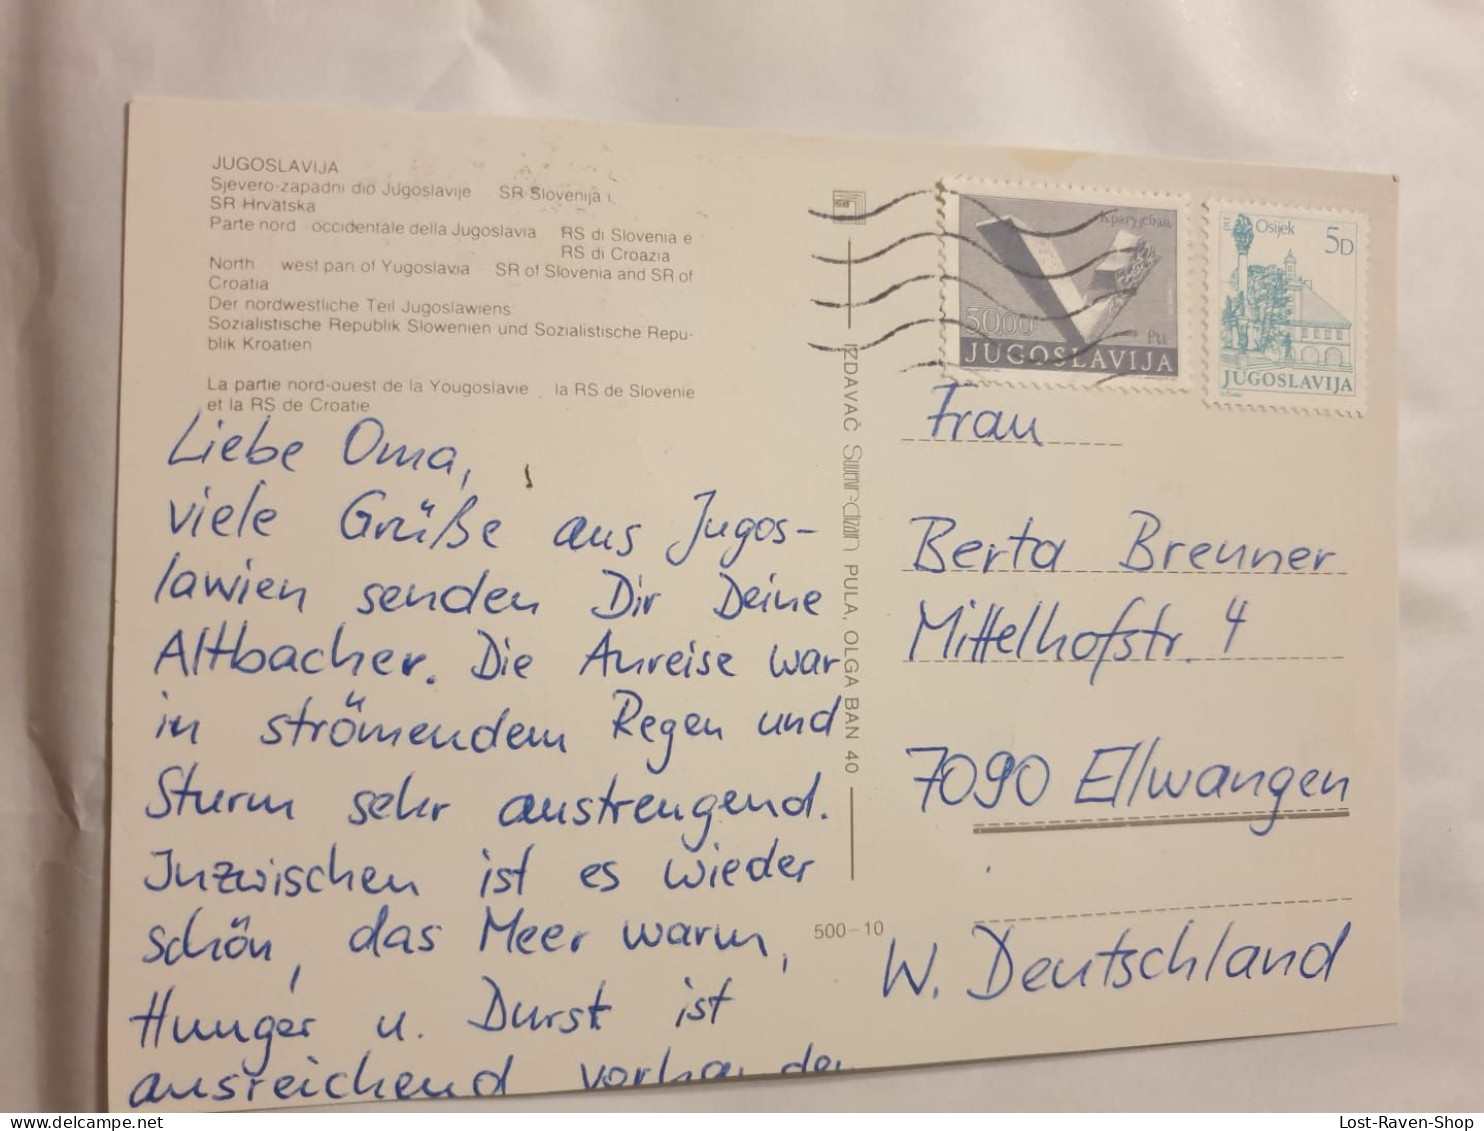 JUGOSLAVIJA
Sjevero-zapadni dio Jugoslavije SR Slovenija i
SR Hrvatska
Parte nord occidentale della Jugoslavia RS di Slovenia e
RS di Croazia
North west part of Yugoslavia SR of Slovenia and SR of
Croatia
Der nordwestliche Teil Jugoslawiens
Sozialistische Republik Slowenien und Sozialistische Repu-
blik Kroatien
La partie nord-ouest de la Yougoslavie la RS de Slovenie
et la RS de Croatie
Liebe Oma,
viele Grüße aus Jugos-
lawien senden Dir Deine
Altbacher. Die Anreise war
in strömendem Regen und
Sturm sehr anstrengend.
Inzwischen ist es wieder
schön, das Meer warm,
Hunger u. Durst ist
ausreichend vorhanden
IZDAVAČ PULA, OLGA BAN 40
500-10
Крагујевац
50.00
JUGOSLAVIJA
Osijek
5D
JUGOSLAVIJA
Frau
Berta Brenner
Mittelhofstr. 4
7090 Ellwangen
W. Deutschland
Lost-Raven-Shop